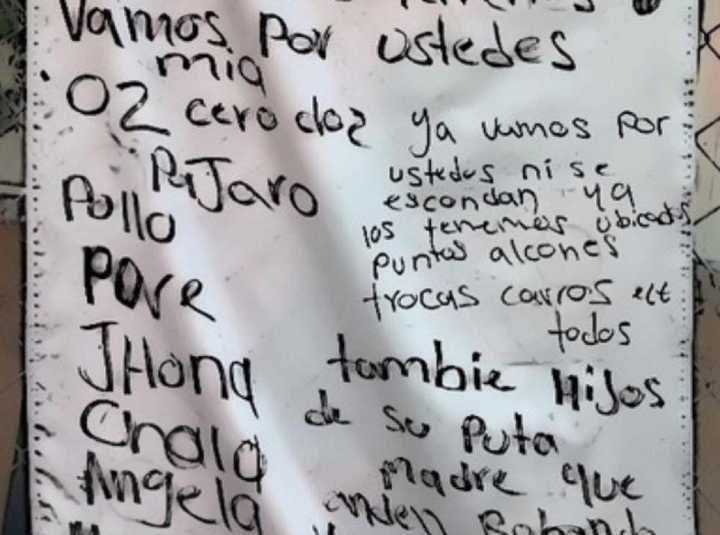 Vamos por ustedes
mia
02 cero doz ya vamos por
PaJaro ustedes ni se
Pollo escondan ya
los tenemos ubicados
puntos alcones
Pove trocas carros ect
todos
JHona tambie HiJos
Chala de su Puta
Angela Madre que
anden Roband